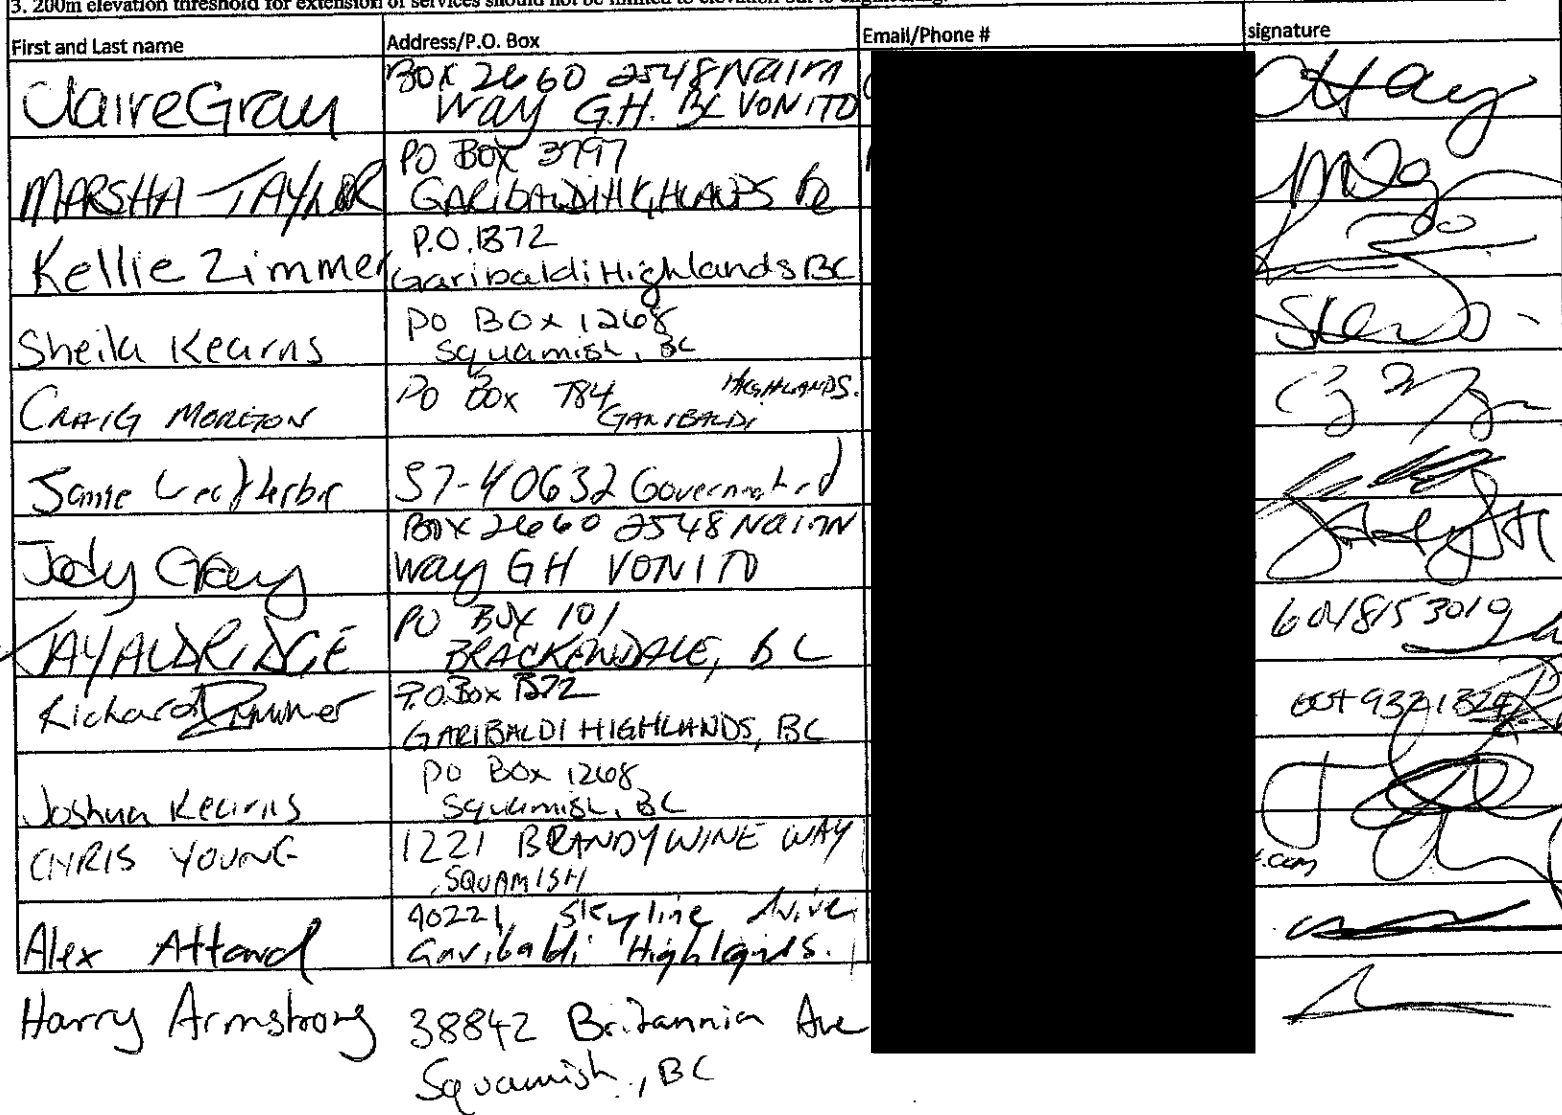 3. 200m elevation threshold for extension of services should not be limited to elevation but to engineering.
First and Last name Address/P.O. Box Email/Phone # signature
Claire Gray Box 2660 2548 Nairn
Way G.H. BC V0N 1T0
MARSHA TAYLOR PO BOX 3797
GARIBALDI HIGHLANDS BC
Kellie Zimmer P.O. 1372
Garibaldi Highlands BC
Sheila Kearns PO BOX 1268
Squamish, BC
CRAIG MORETON PO Box 784 HIGHLANDS.
GARIBALDI
Jamie 57-40632 Government rd
Jody Gray BOX 2660 2548 Nairn
Way GH V0N 1T0
JAY ALDRIDGE PO BOX 101 604 815 3019
BRACKENDALE, BC
Richard Zimmer P.O. Box 1372
GARIBALDI HIGHLANDS, BC
Joshua Kearns PO Box 1268
Squamish, BC
CHRIS YOUNG 1221 BRANDYWINE WAY
SQUAMISH .com
Alex Attard 40221 Skyline drive
Garibaldi Highlands.
Harry Armstrong 38842 Britannia Ave
Squamish, BC